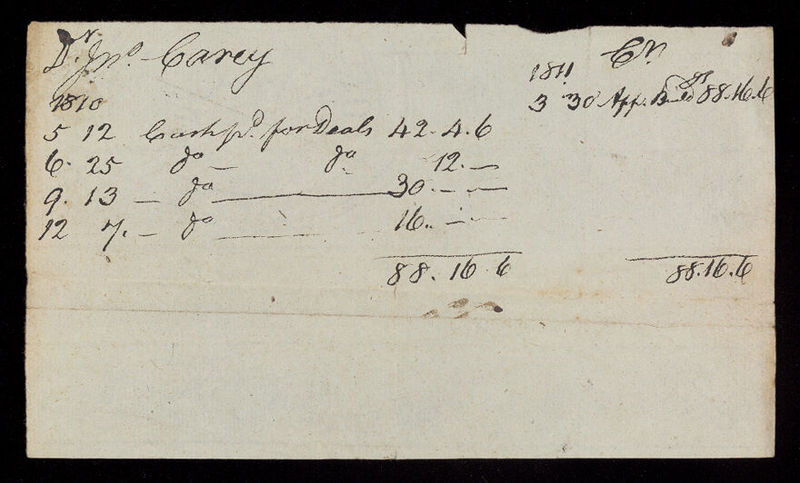 Dr. Jno Carey
1810
5 12 Cash pd. for Deals 42.4.6
6. 25 do — do 12. —
9. 13 — do — 30. — —
12 7. — do — 16. — —
88. 16. 6
Cr.
1811
3 30 App. 88.16.6
88.16.6